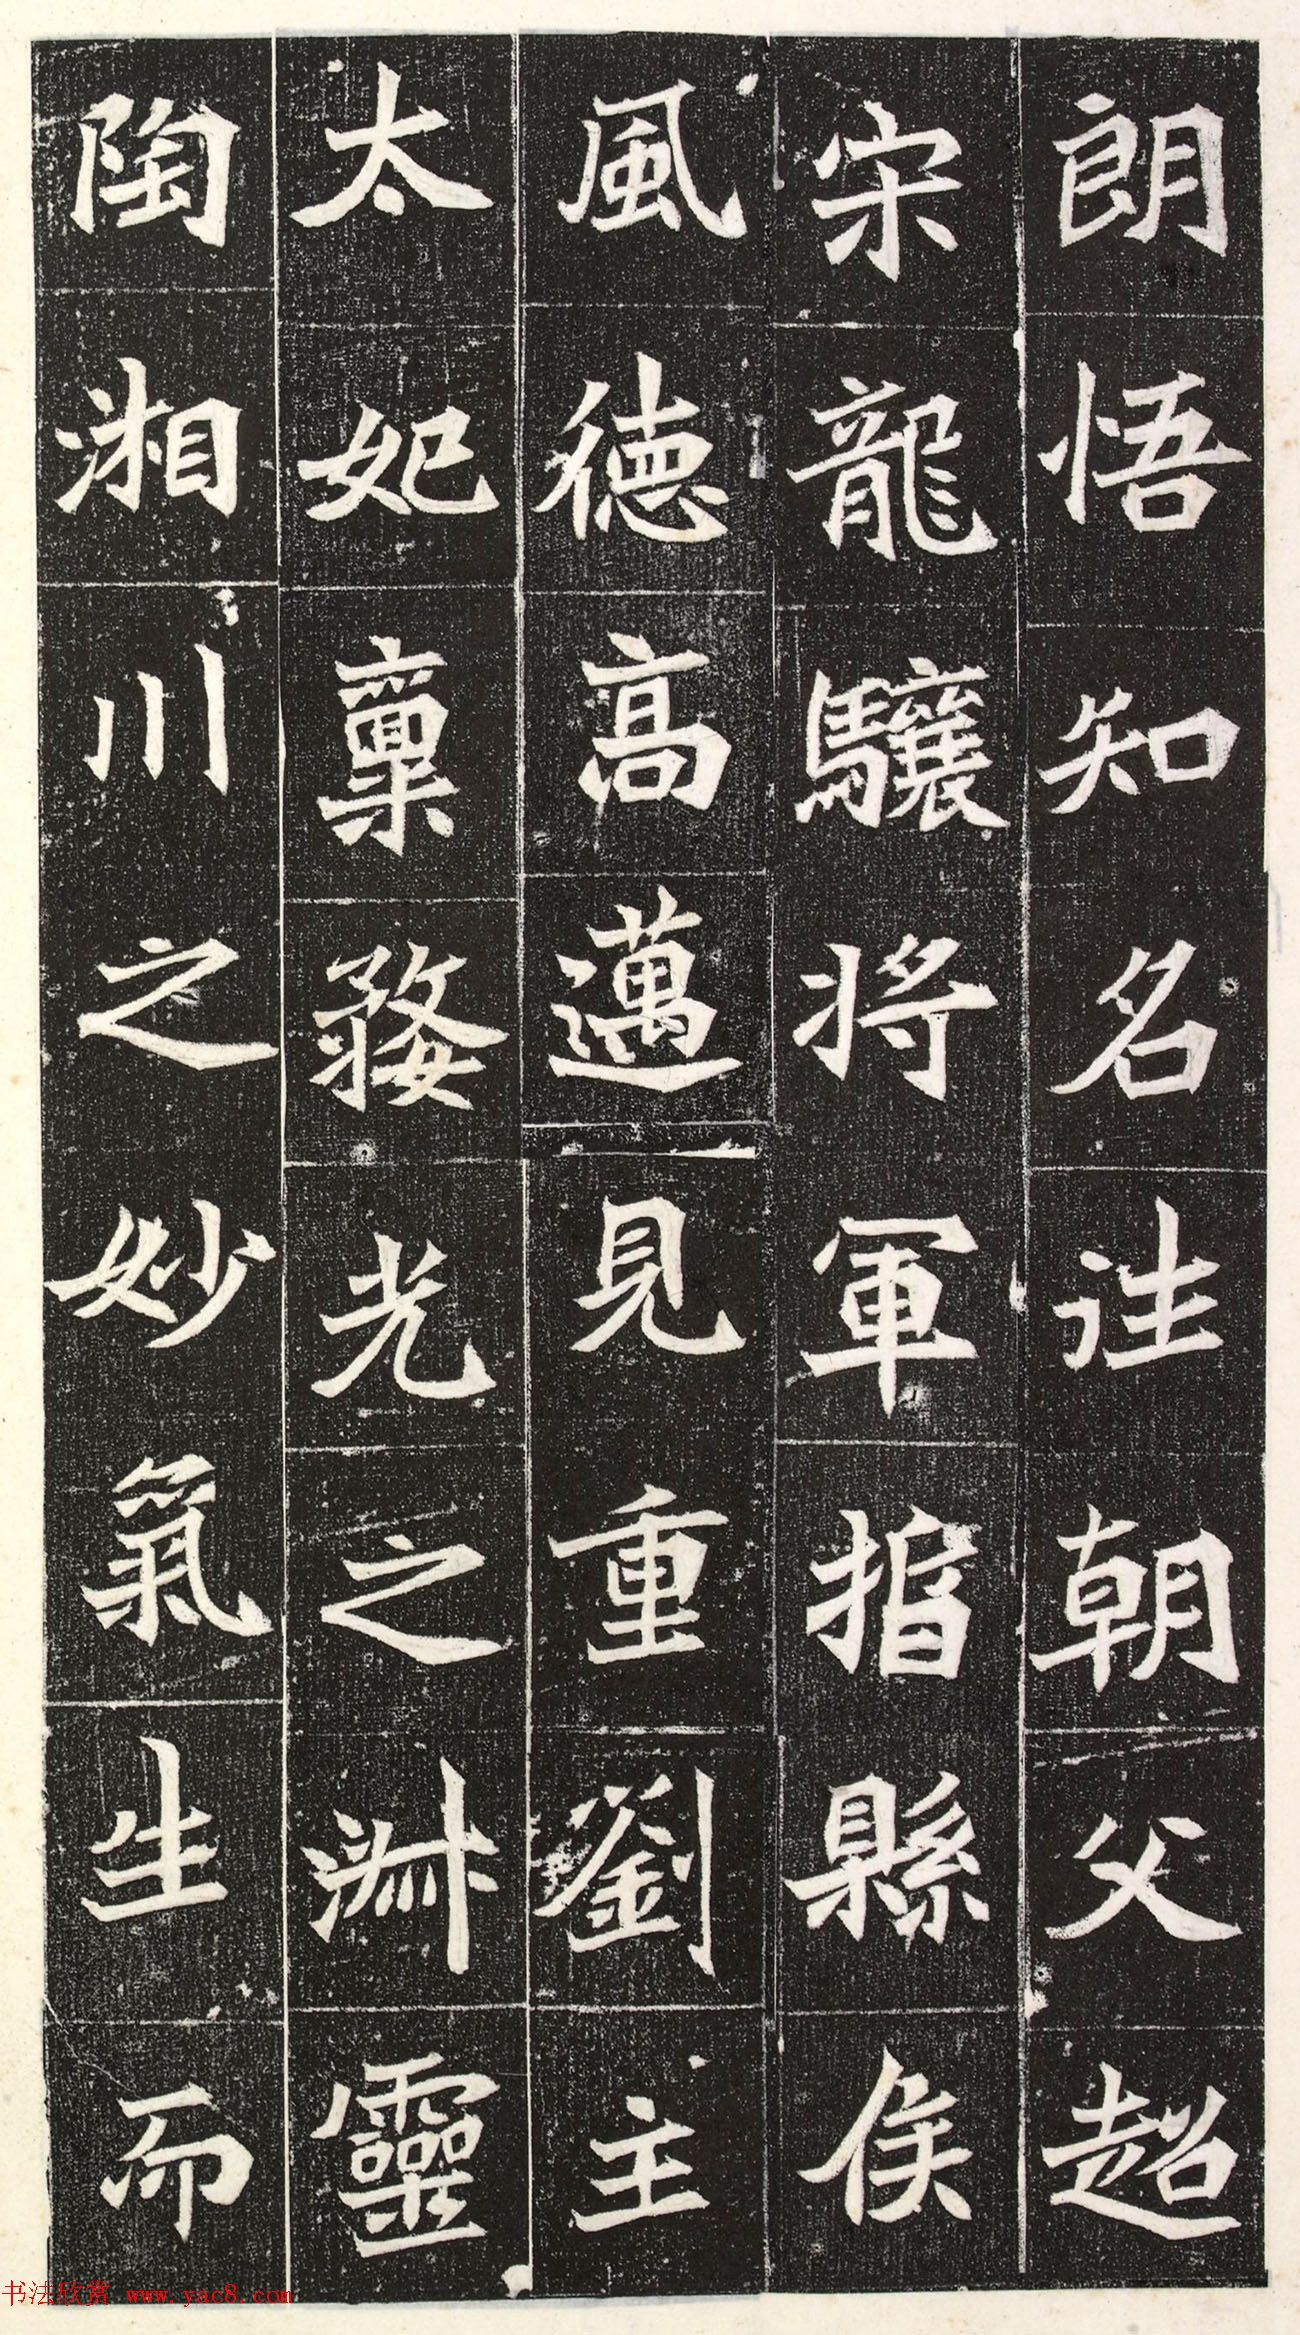 朗悟知名往朝父超
宋龍驤將軍揟縣侯
風德高邁見重劉主
太妃稟婺光之淋靈
陶湘川之妙氣生而
书法欣赏 www.yac8.com